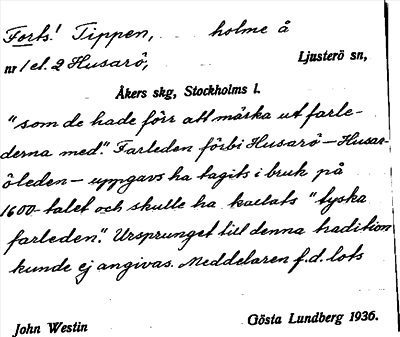 Forts! Tippen, holme å
nr 1 el. 2 Husarö, Ljusterö sn,
Åkers skg, Stockholms l.
"som de hade förr att märka ut farle-
derna med". Farleden förbi Husarö - Husar-
öleden - uppgavs ha tagits i bruk på
1600-talet och skulle ha kallats "tyska
farleden". Ursprunget till denna tradition
kunde ej angivas. Meddelaren f.d. lots
John Westin Gösta Lundberg 1936.